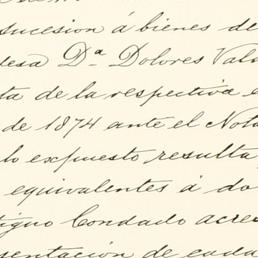 sucesion á bienes de
desa Dª Dolores Val
ta de la respectiva e
de 1874 ante el Nota
lo expuesto resulta,
equivalentes á do
tiguo Condado acre
sentación de cada